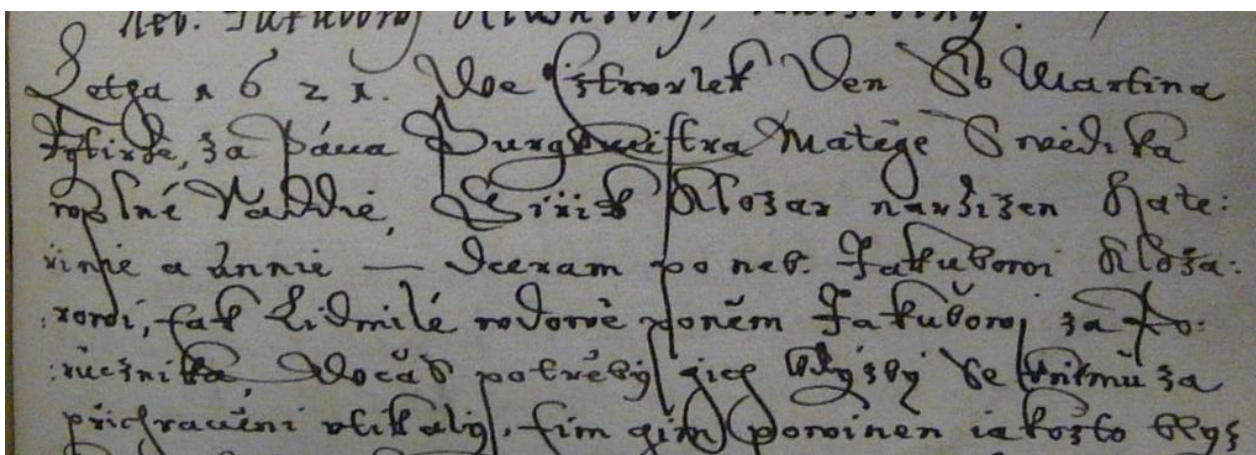 Neb. Jakubovi
Letha 1621. We Cžtwrtek Den S. Martina
za Pána Purgkmistra Matěge Swědika
w plné Raddie, Giřik Kložar nařžižen Kate:
řinie a Annie — Dceram po neb. Jakubowi Kloža:
:rowi, tak Lidmilé wdowě poněm Jakubowi za Po:
:ručznika, Wočžas potřeby gich blyžssy se k němu za
přichraněni utikaly, tim gim powinen iakožto blyž